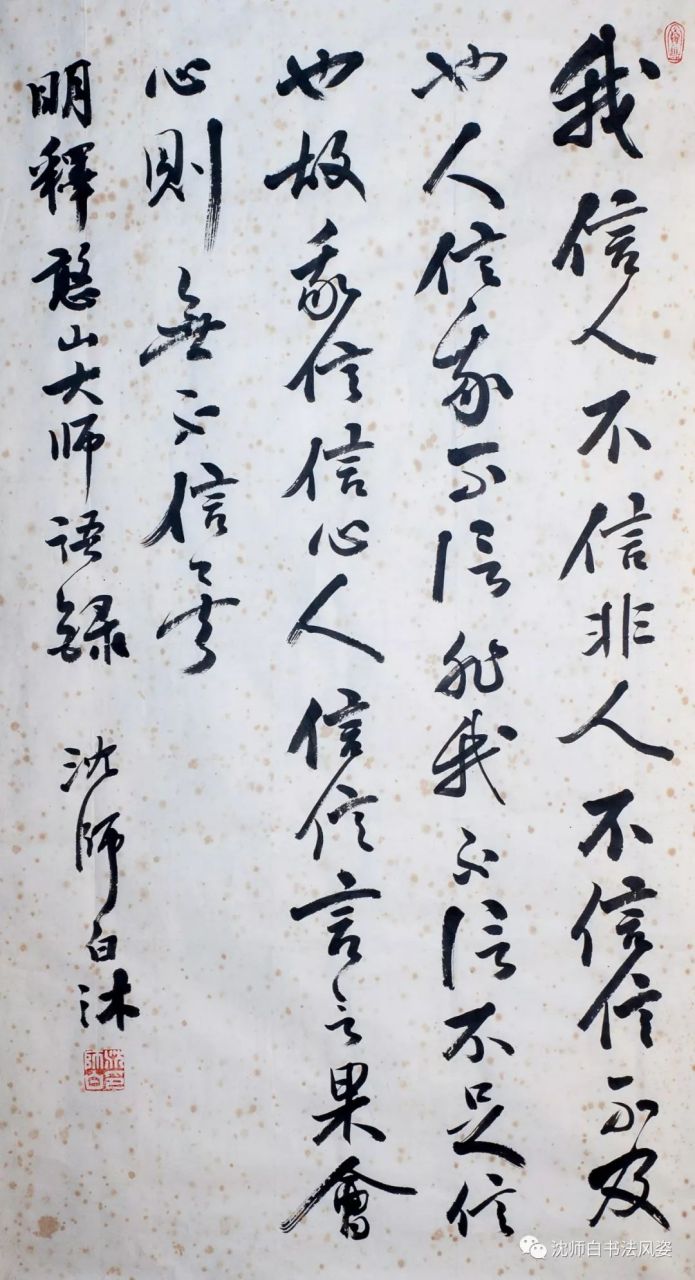 我信人不信非人不信信不及
也人信我不信非我不信不足信
也故我信信心人信信言言果會
心則無不信矣
明釋憨山大師語錄
沈師白沐
沈师白书法风姿